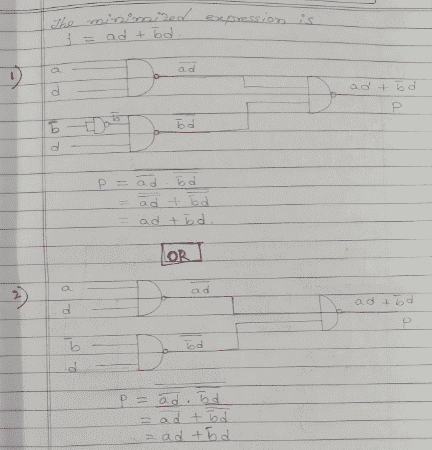 The minimized expression is
f = ad + b̅d
1)
a
d
a̅d̅
b̅
b̅
d
b̅d̅
ad + b̅d
P
P = a̅d̅ . b̅d̅
= a̅d̅ + b̅d̅
= ad + b̅d.
OR
2)
a
d
a̅d̅
b̅
d
b̅d̅
ad + b̅d
P
P = a̅d̅ . b̅d̅
= ad + b̅d̅
= ad + b̅d